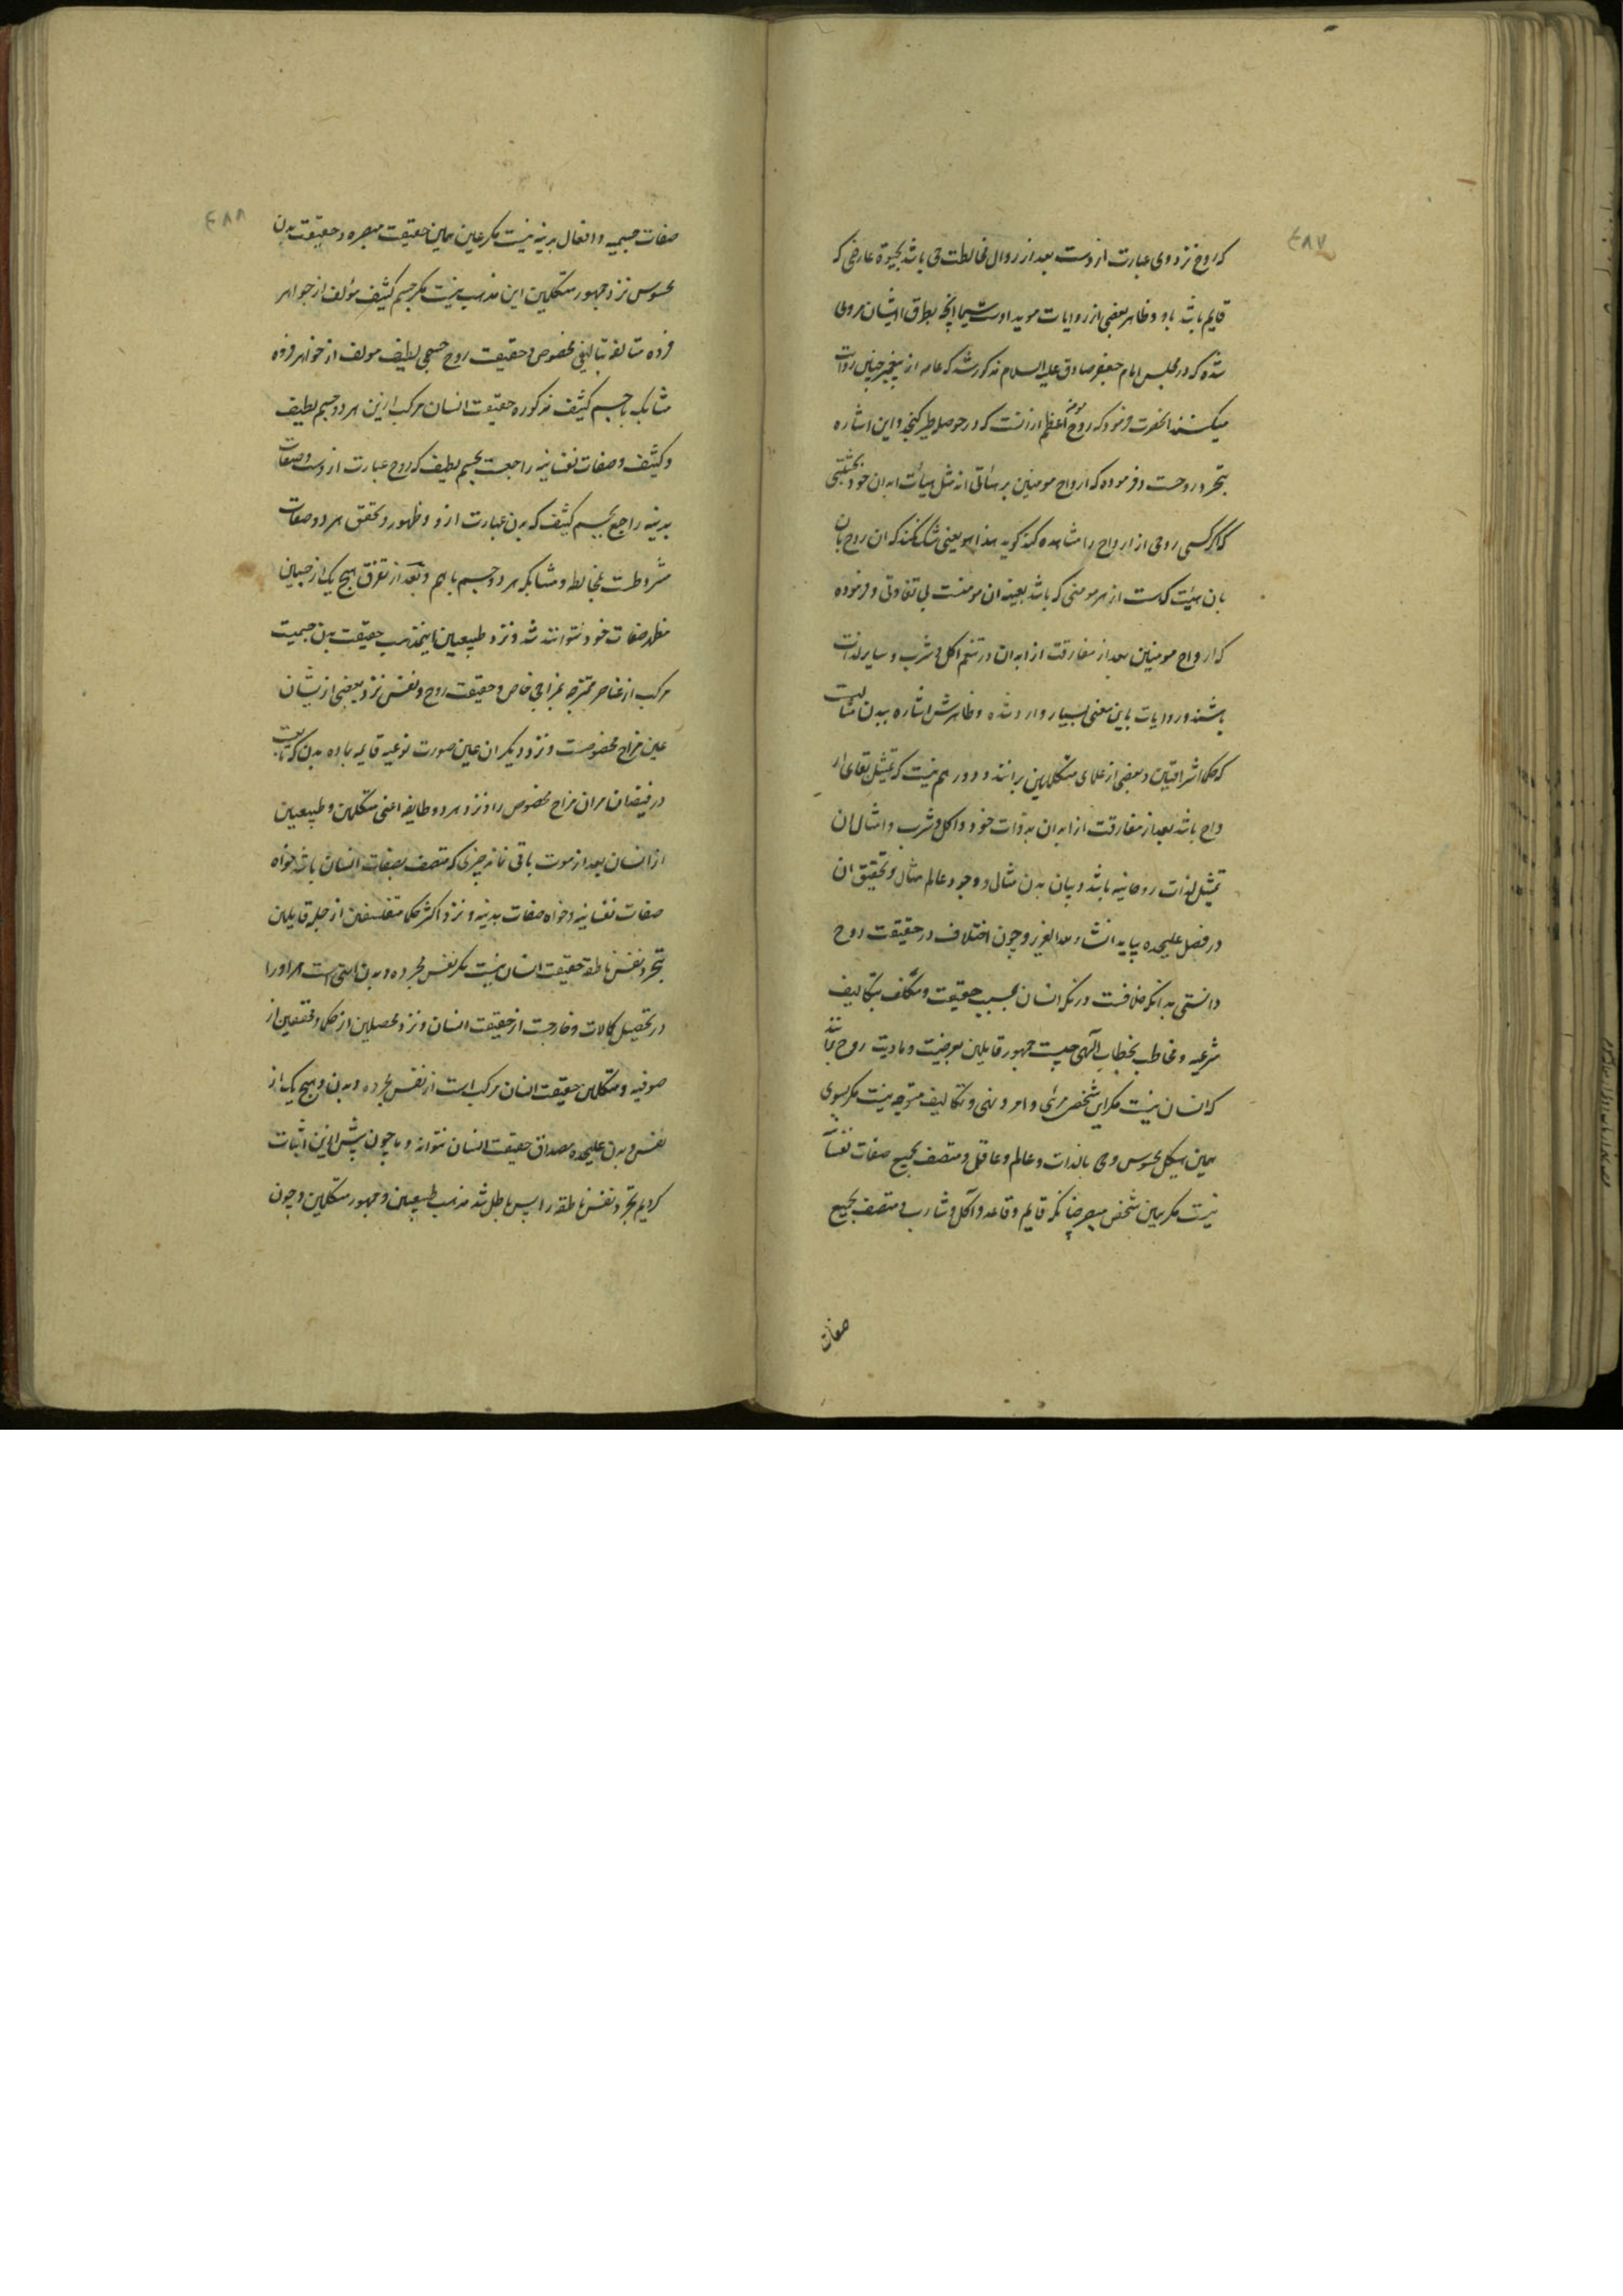 ٤٨٧
که روح نزد وی عبارت ازوست بعد از زوال مخالطت حی باشد بحیوة عارضی که
قایم باشد باو و ظاهر بعضی از روایات موید اوست سیما انچه بطرق ایشان مروی
شده که در مجلس امام جعفر صادق علیه السلام مذکور شد که عامه از پیغمبر چنین روایت
میکنند انحضرت فرمود که روح مومن اعظم ازانست که در حوصله طیر گنجد و این اشاره
بتجرد روحست و فرموده که ارواح مومنین بر هیأتی اند مثل هیأت ابدان خود بحیثیتی
که اگر کسی روحی از ارواح را مشاهده کند گوید هذا هو یعنی شک نکند که ان روح بان
بان هیئت که هست از هر مومنی که باشد بعینه ان مومنست بی تفاوتی و فرموده
که ارواح مومنین بعد از مفارقت از ابدان در تنعم اکل و شرب و سایر لذات
باشند و روایات باین معنی بسیار وارد شده و ظاهرش اشاره ببدن مثالیست
که حکما اشراقیین و بعضی از علمای متکلمین برانند و دور هم نیست که تمثیل بقای ار
واح باشد بعد از مفارقت از ابدان بذوات خود و اکل و شرب و امثال ان
تمثیل لذات روحانیه باشد و بیان بدن مثال و وجود عالم مثال و تحقیق ان
در فصل علیحده بیاید انشاء الله العزیز و چون اختلاف در حقیقت روح
دانستی بدانکه خلافست در انکه انسان بحسب حقیقت و مکلف بتکالیف
شرعیه و مخاطب بخطاب الهی چیست جمهور قایلین بعرضیت و مادیت روح برانند
که انسان نیست مگر این شخص مرئی و امر و نهی و تکالیف متوجه نیست مگر بسوی
همین هیکل محسوس و حی بالذات و عالم و عاقل و متصف بجمیع صفات نفسانیه
نیست مگر همین شخص مبصر چنانکه قایم و قاعد و آکل و شارب و متصف بجمیع
صفات
٤٨٨
صفات جسمیه و افعال بدنیه نیست مگر عین همین حقیقت مبصره و حقیقت بدن
محسوس نزد جمهور متکلمین این مذهب نیست مگر جسم کثیف مؤلف از جواهر
فرده متالفه بتالیفی مخصوص و حقیقت روح جسمی لطیف مولف از جواهر فرده
متشابک با جسم کثیف مذکور و حقیقت انسان مرکب ازین هر دو جسم لطیف
و کثیف و صفات نفسانیه راجعست بجسم لطیف که روح عبارت ازوست و صفات
بدنیه راجع بجسم کثیف که بدن عبارت ازو و ظهور و تحقق هر دو صفات
مشروطست بمخالطه و متشابکه هر دو جسم باهم و بعد از تفرق هیچ یک از جسمین
مظهر صفات خود نتوانند شد و نزد طبیعیین اینمذهب حقیقت بدن جسمیست
مرکب از عناصر ممتزجه بمزاجی خاص و حقیقت روح و نفس نزد بعضی ازیشان
عین مزاج مخصوصست و نزد دیگران عین صورت نوعیه قایمه بماده بدن که تابعست
در فیضان مران مزاج مخصوص را و نزد هر دو طایفه اعنی متکلمین و طبیعیین
از انسان بعد از موت باقی نماند چیزی که متصف بصفات انسان باشد خواه
صفات نفسانیه و خواه صفات بدنیه و نزد اکثر حکما متفلسفین از جمله قایلین
بتجرد نفس ناطقه حقیقت انسان نیست مگر نفس مجرده و بدن التی است مر او را
در تحصیل کمالات و خارجست از حقیقت انسان و نزد محصلین از حکما و محققین از
صوفیه و متکلمین حقیقت انسان مرکب است از نفس مجرده و بدن و هیچ یک از
نفس و بدن علیحده مصداق حقیقت انسان نتواند و ما چون پیش ازین اثبات
کردیم تجرد نفس ناطقه را پس باطل شد مذهب طبیعیین و جمهور متکلمین و چون